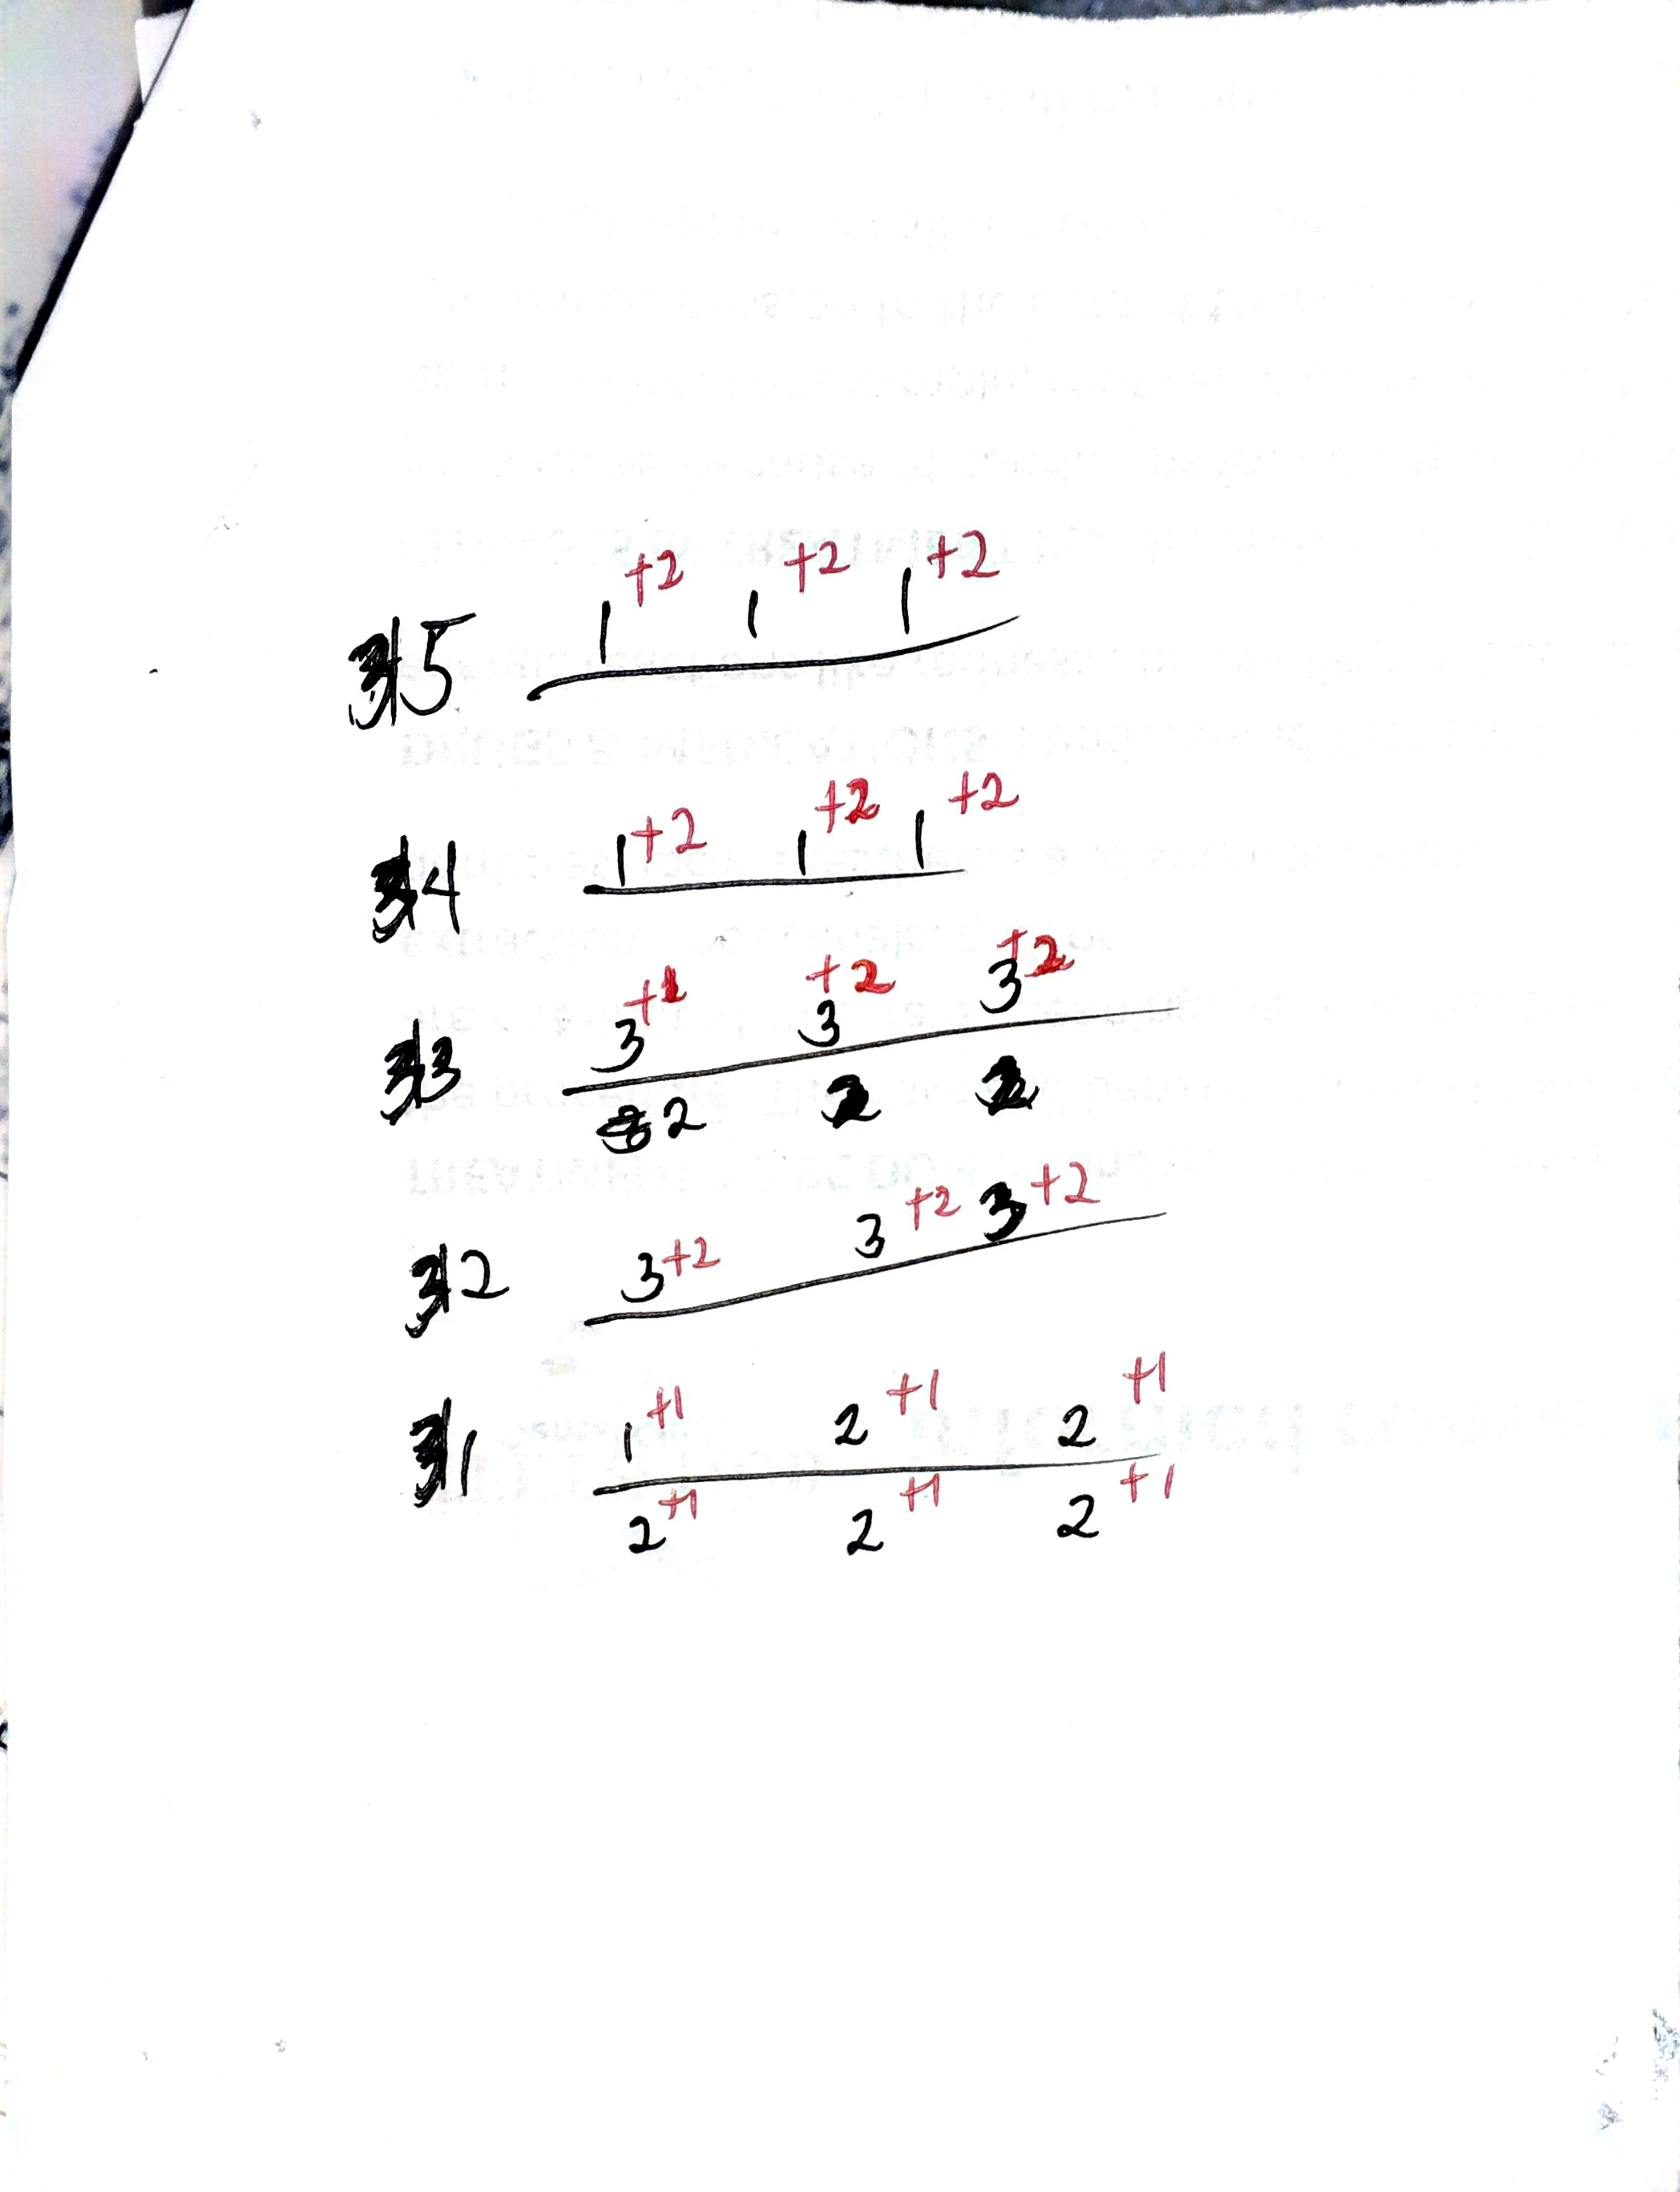 5 1+2 1+2 1+2
4 1+2 1+2 1+2
3 3+ 3+2 3+2
2 2 2
2 3+2 3+2 3+2
1 1+1 2+1 2+1
2+1 2+1 2+1